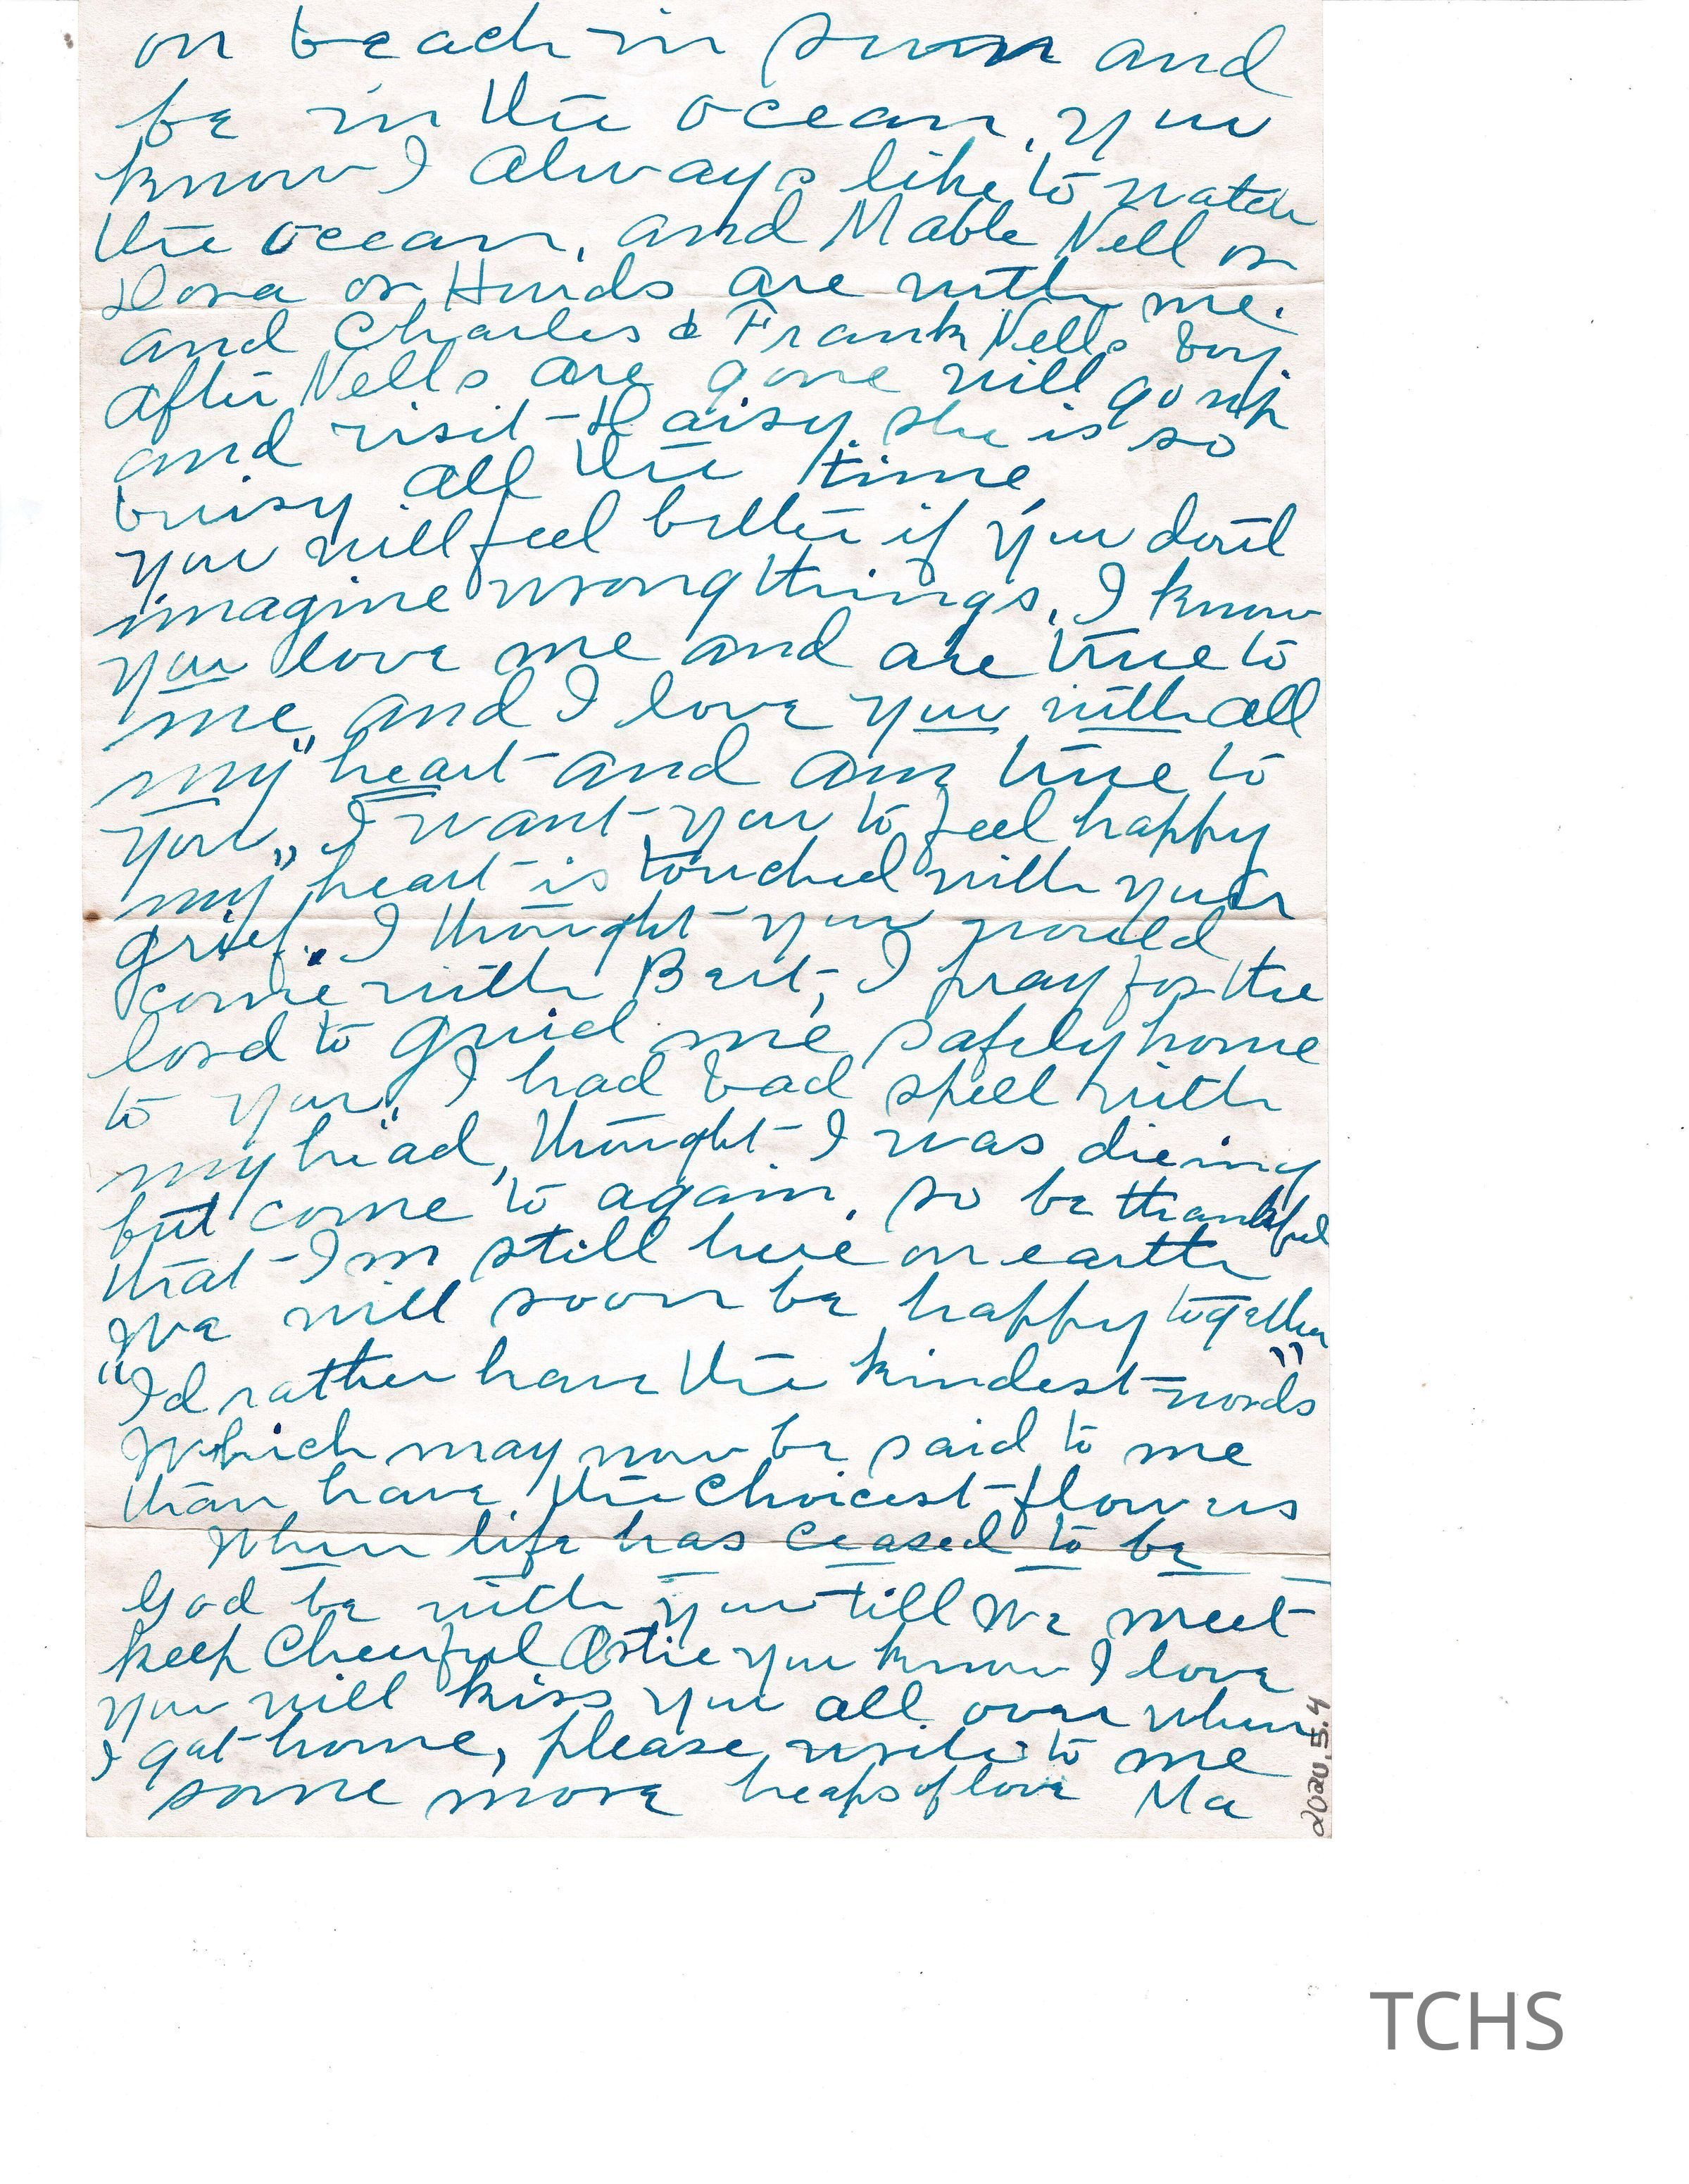 on beach in sun and
be in the ocean, you
know I always like to watch
the ocean, and Mable Nell or
Dora or Hinds are with me.
and Charles & Frank Nells boy
after Nells are gone will go up
and visit Daisy, she is so
buisy all the time,
you will feel better if you don't
imagine wrong things, I know
you love me and are true to
me, and I love you with all
my" heart and am true to
you,, I want you to feel happy
my" heart is touched with your
grief,, I thought you would
come with Bert, I pray for the
lord to guid me safely home
to you,, I had bad spell with
my head, thought I was dieing
but come to again, so be thankful
that I'm still here on earth
We will soon be happy together
"I'd rather have the kindest words"
Which may now be said to me
than have the choicest flowers
When life has ceased to be
God be with you till we meet
keep cheerful Ostie you know I love
you will kiss you all over when
I get home, please write to me
some more heaps of love Ma
2020.5.4
TCHS